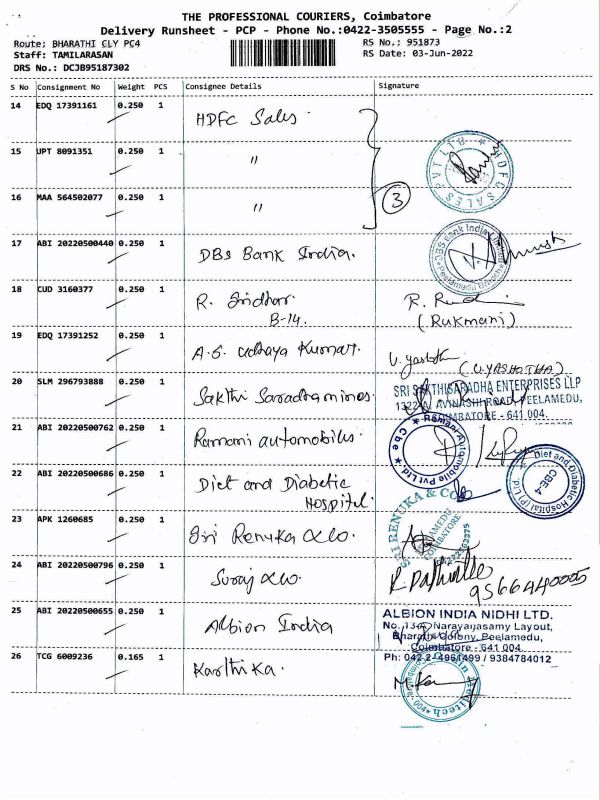 THE PROFESSIONAL COURIERS, Coimbatore
Delivery Runsheet - PCP - Phone No.:0422-3505555 - Page No.:2
Route: BHARATHI CLY PC4 RS No.: 951873
Staff: TAMILARASAN RS Date: 03-Jun-2022
DRS No.: DCJB95187302
S No Consignment No Weight PCS Consignee Details Signature
14 EDQ 17391161 0.250 1 HDFC Sales.
15 UPT 8091351 0.250 1 "
HDFC SALES PVT LTD
16 MAA 564502077 0.250 1 " 3
17 ABI 20220500440 0.250 1 DBS Bank India.
DBS Bank India
18 CUD 3160377 0.250 1 R. Sridhar
B-14. (Rukmani)
19 EDQ 17391252 0.250 1 A.S. Udhaya Kumar.
(U.YASHOTHA)
20 SLM 296793888 0.250 1 Sakthi Saradra mines.
SRI SAKTHISARADHA ENTERPRISES LLP
1322/A, AVINASHI ROAD, PEELAMEDU,
COIMBATORE - 641 004.
21 ABI 20220500762 0.250 1 Ramani automobiles.
Ramani Automobile Pvt Ltd. Cbe
22 ABI 20220500686 0.250 1 Diet and Diabetic
Hospitel.
Diet and Diabetic Hospital (P) Ltd CBE-4
23 APK 1260685 0.250 1 Sri Renuka &co.
SRI RENUKA & Co
PEELAMEDU
COIMBATORE
24 ABI 20220500796 0.250 1 Suraj &co.
9566440005
25 ABI 20220500655 0.250 1 Albion India
ALBION INDIA NIDHI LTD.
No. 13-A, Narayanasamy Layout,
Bharathi Colony, Peelamedu,
Coimbatore - 641 004
Ph: 0422-4961499 / 9384784012
26 TCG 6009236 0.165 1 Karthika.